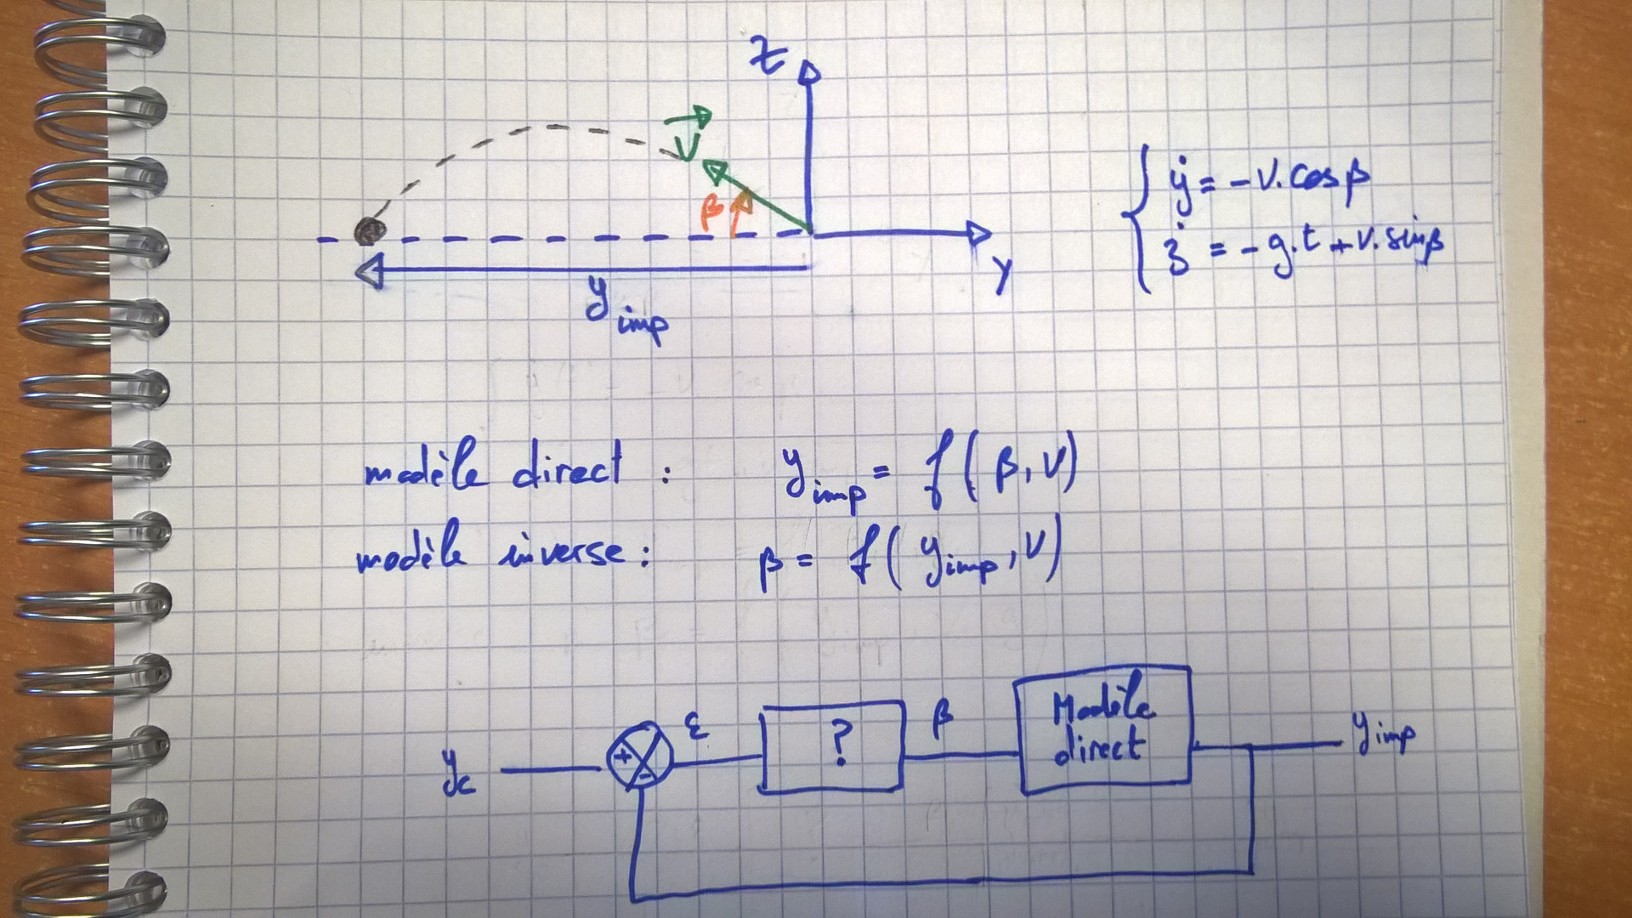 Z
V
β
y
y imp
ẏ = -V.cosβ
ż = -g.t + V.sinβ
modèle direct : y imp = f(β, V)
modèle inverse : β = f(y imp, V)
yc + - ε ? β Modèle direct y imp